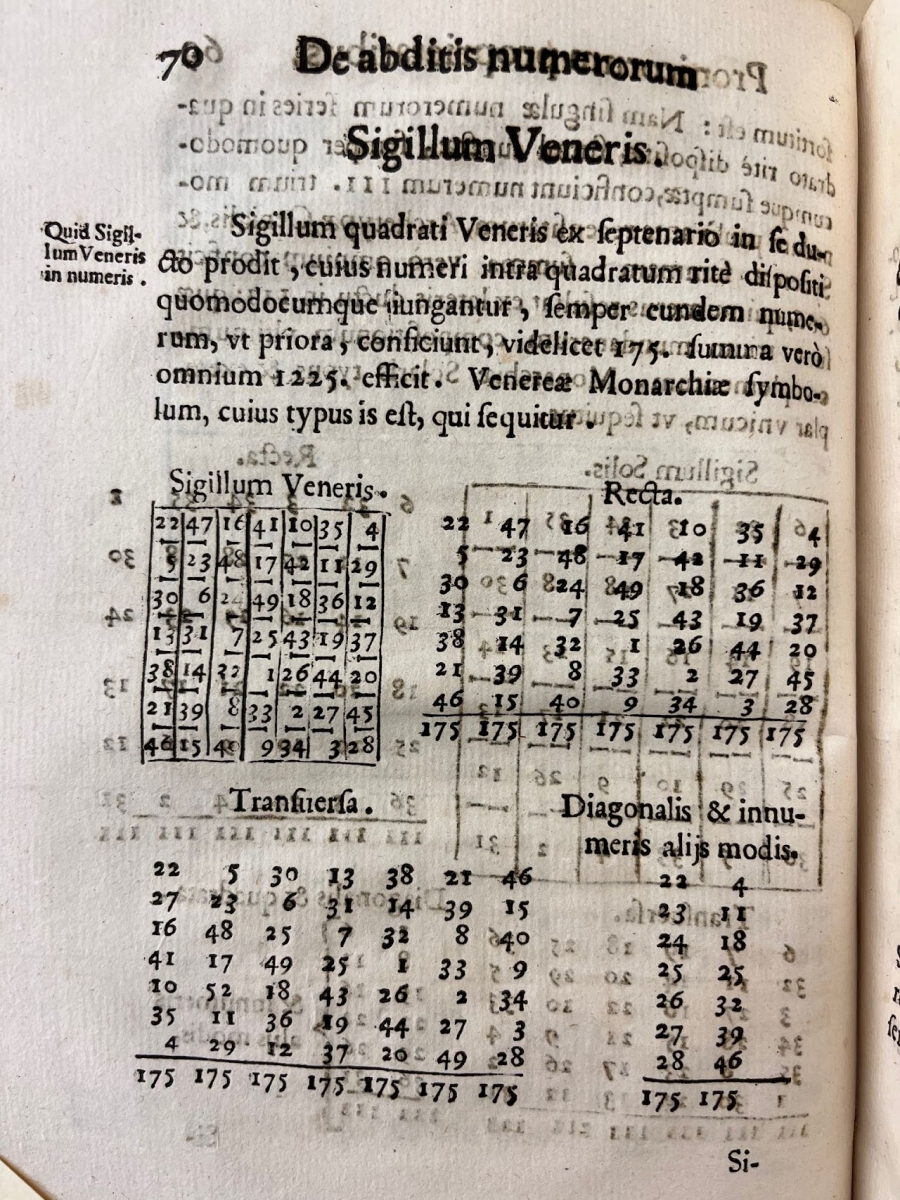 70 De abditis numerorum
Sigillum Veneris.
Quid Sigil-
lum Veneris
in numeris.
Sigillum quadrati Veneris ex ſeptenario in ſe du-
cto prodit, cuius numeri intra quadratum ritè diſpoſiti
quomodocumque iungantur, ſemper eundem nume-
rum, vt priora, conficiunt, videlicet 175. ſumma verò
omnium 1225. efficit. Venereæ Monarchiæ ſymbo-
lum, cuius typus is eſt, qui ſequitur.
Sigillum Veneris.
22 47 16 41 10 35 4
5 23 48 17 42 11 29
30 6 24 49 18 36 12
13 31 7 25 43 19 37
38 14 32 1 26 44 20
21 39 8 33 2 27 45
46 15 40 9 34 3 28
Recta.
22 47 16 41 10 35 4
5 23 48 17 42 11 29
30 6 24 49 18 36 12
13 31 7 25 43 19 37
38 14 32 1 26 44 20
21 39 8 33 2 27 45
46 15 40 9 34 3 28
175 175 175 175 175 175 175
Tranſuerſa.
22 5 30 13 38 21 46
27 23 6 31 14 39 15
16 48 25 7 32 8 40
41 17 49 25 1 33 9
10 52 18 43 26 2 34
35 11 36 19 44 27 3
4 29 12 37 20 49 28
175 175 175 175 175 175 175
Diagonalis & innu-
meris alijs modis.
22 4
23 11
24 18
25 25
26 32
27 39
28 46
175 175
Si-